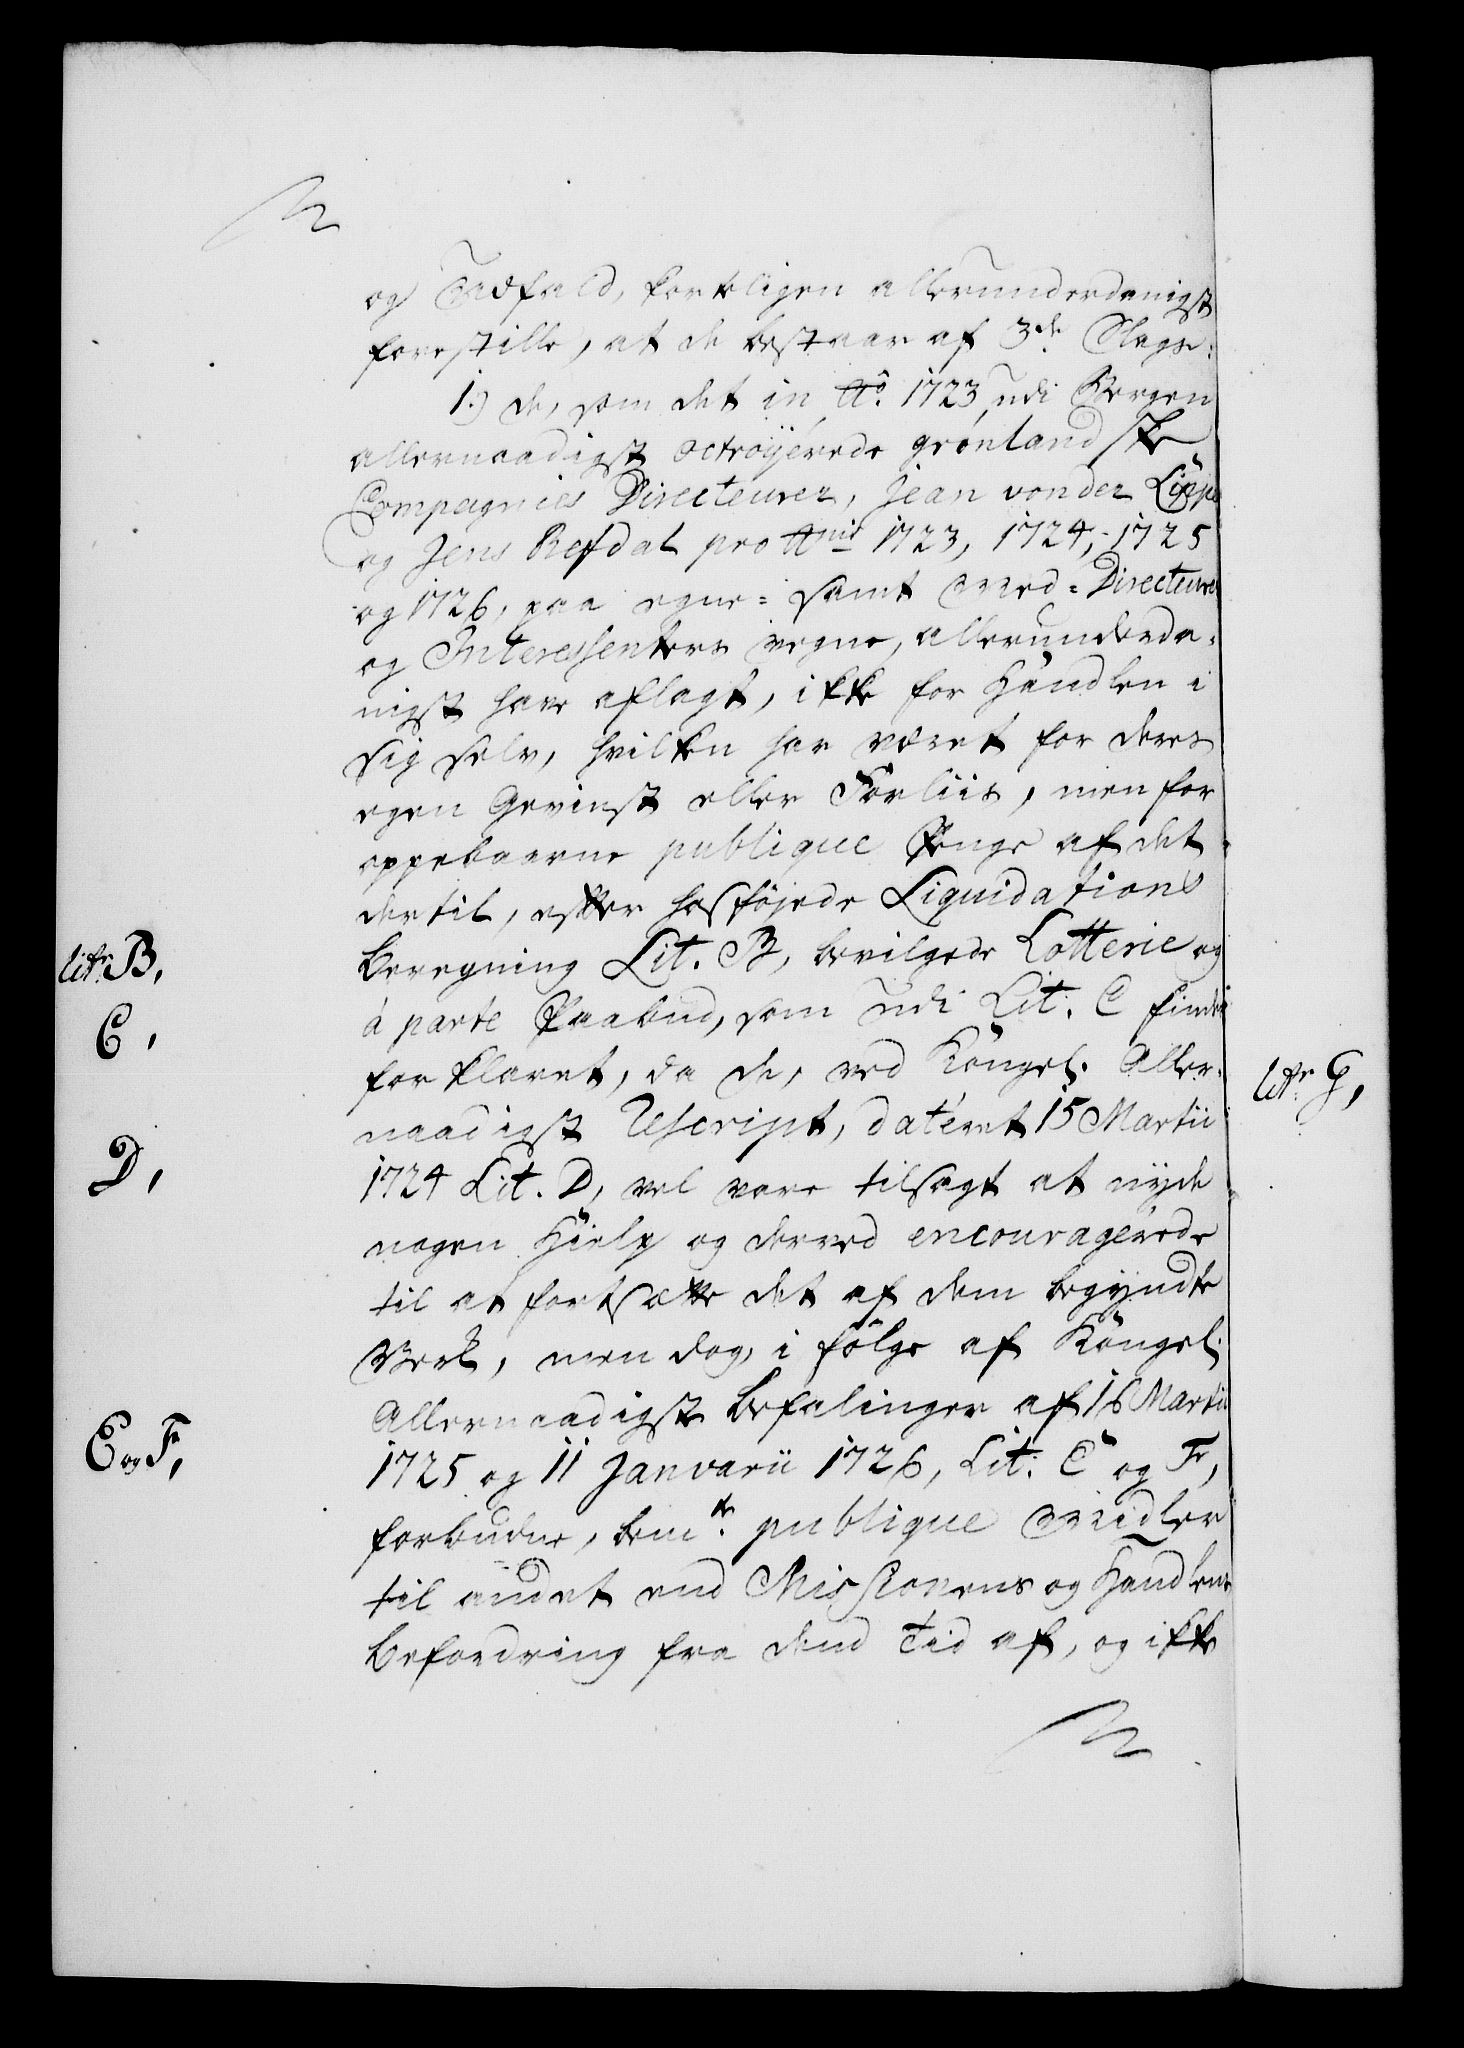 og Tudfald, korteligen allerunderdanigst
forestille, at de bestaar af 3de Slags:
1.) de, som det in Ao. 1723 udi Bergen
allernaadigst octroÿerede grønlandske
Compagnies Directeurer, Jean von der Lippe
og Jens Refdal pro Annis 1723, 1724, 1725
og 1726, paa egne= samt Med=Directeurer
og Interessenters vegne, allerunderda=
nigst have aflagt, ikke for Handlen i
sig selv, hvilken har været for deres
egen Gevinst eller Forliis, men for
oppebaarne publique Penge af det
dertil, efter hosføjede Liquidations
Beregning Lit. B, bevilgede Lotterie og
à parte Paabud, som udi Lit. C findes
forklaret, da de, ved Kongel. Aller=
naadigst Rescript, dateret 15 Martii
1724 Lit. D, vel vare tilsagt at nÿde
nogen Hielp og derved encouragerede
til at fortsætte det af dem begÿndte
Verk, men dog, i følge af Kongel.
Allernaadigste Befalinger af 16 Martii
1725 og 11 Januarii 1726, Lit. E og F,
forbudne, bemte. publique Midler
til andet end Missionens og Handlens
Befordring fra dend Tid af, og ikke
litr. B,
C,
D,
E og F,
litr. G,